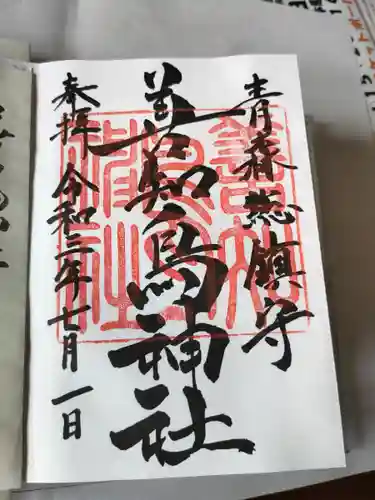 青森総鎮守
善知鳥神社
奉拝 令和二年七月一日